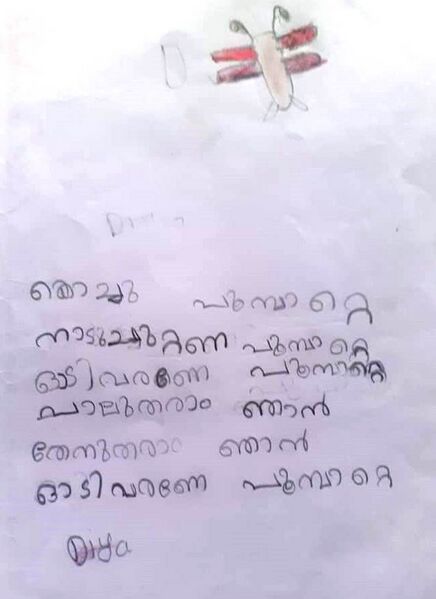 D
കൊച്ചു പൂമ്പാറ്റെ
നാടുചുറ്റണ പൂമ്പാറ്റെ
ഓടിവരണേ പൂമ്പാറ്റെ
പാലുതരാം ഞാൻ
തേനുതരാം ഞാൻ
ഓടിവരണേ പൂമ്പാറ്റെ
Diya